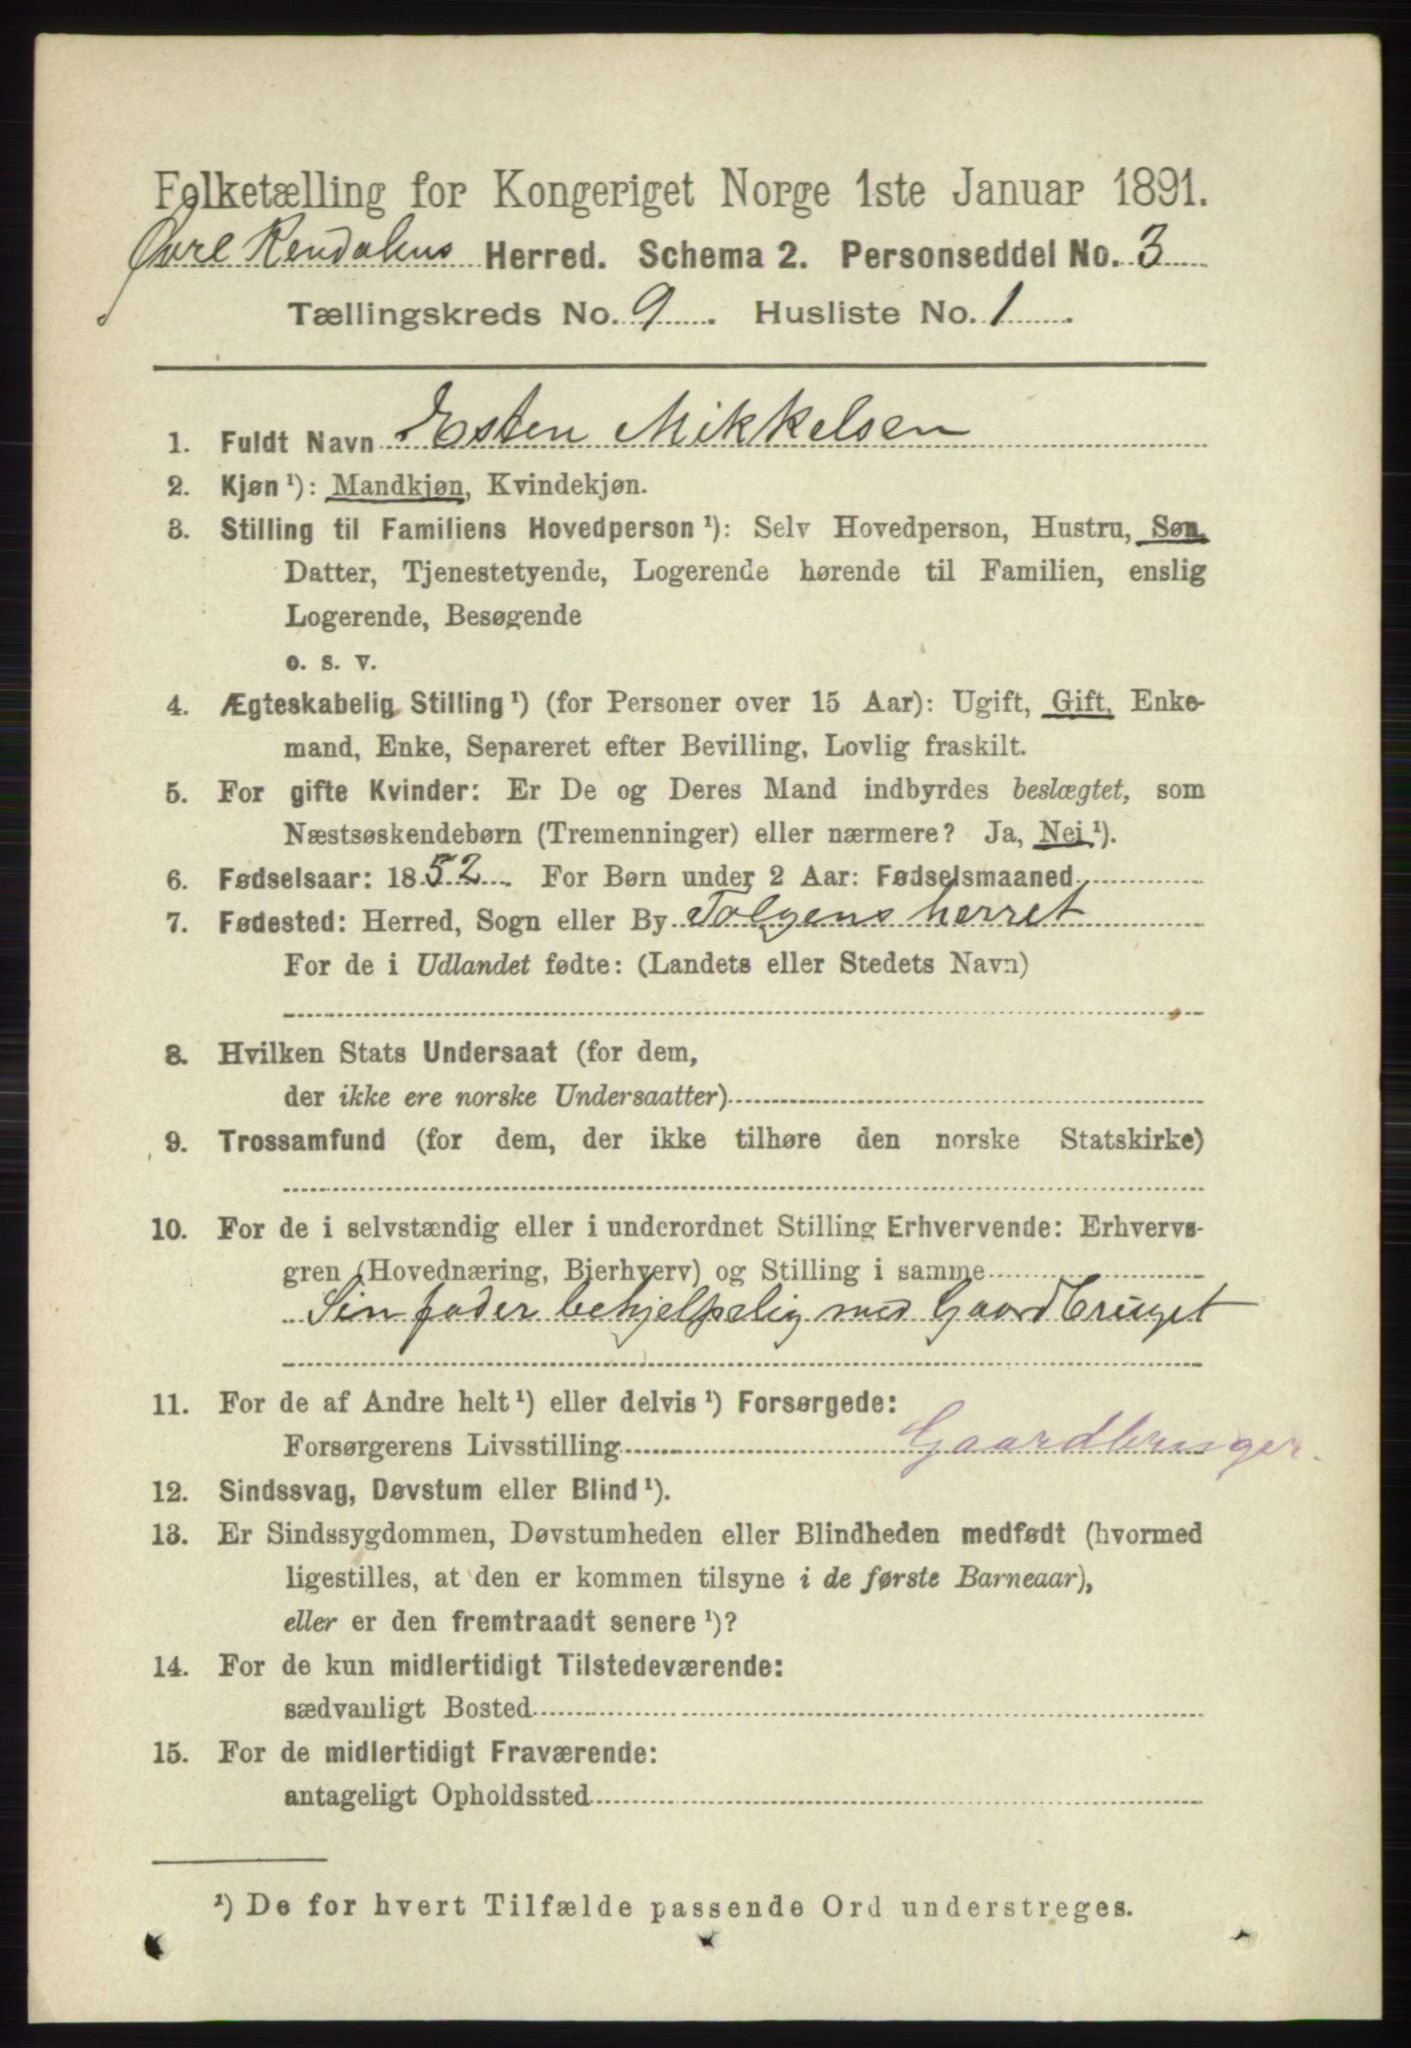 Folketælling for Kongeriget Norge 1ste Januar 1891.
Øvre Rendalens Herred. Schema 2. Personseddel No. 3
Tællingskreds No. 9. Husliste No. 1.
1. Fuldt Navn Esten Mikkelsen
2. Kjøn ¹): Mandkjøn, Kvindekjøn.
3. Stilling til Familiens Hovedperson ¹): Selv Hovedperson, Hustru, Søn,
Datter, Tjenestetyende, Logerende hørende til Familien, enslig
Logerende, Besøgende
o. s. v.
4. Ægteskabelig Stilling ¹) (for Personer over 15 Aar): Ugift, Gift, Enke-
mand, Enke, Separeret efter Bevilling, Lovlig fraskilt.
5. For gifte Kvinder: Er De og Deres Mand indbyrdes beslægtet, som
Næstsøskendebørn (Tremenninger) eller nærmere? Ja, Nei ¹).
6. Fødselsaar: 1852. For Børn under 2 Aar: Fødselsmaaned
7. Fødested: Herred, Sogn eller By Tolgens herret
For de i Udlandet fødte: (Landets eller Stedets Navn)
8. Hvilken Stats Undersaat (for dem,
der ikke ere norske Undersaatter)
9. Trossamfund (for dem, der ikke tilhøre den norske Statskirke)
10. For de i selvstændig eller i underordnet Stilling Erhvervende: Erhvervs-
gren (Hovednæring, Bierhverv) og Stilling i samme
Sin fader behjelpelig med Gaardbruget
11. For de af Andre helt ¹) eller delvis ¹) Forsørgede:
Forsørgerens Livsstilling Gaardbruger.
12. Sindssvag, Døvstum eller Blind ¹).
13. Er Sindssygdommen, Døvstumheden eller Blindheden medfødt (hvormed
ligestilles, at den er kommen tilsyne i de første Barneaar),
eller er den fremtraadt senere ¹)?
14. For de kun midlertidigt Tilstedeværende:
sædvanligt Bosted
15. For de midlertidigt Fraværende:
antageligt Opholdssted
¹) De for hvert Tilfælde passende Ord understreges.